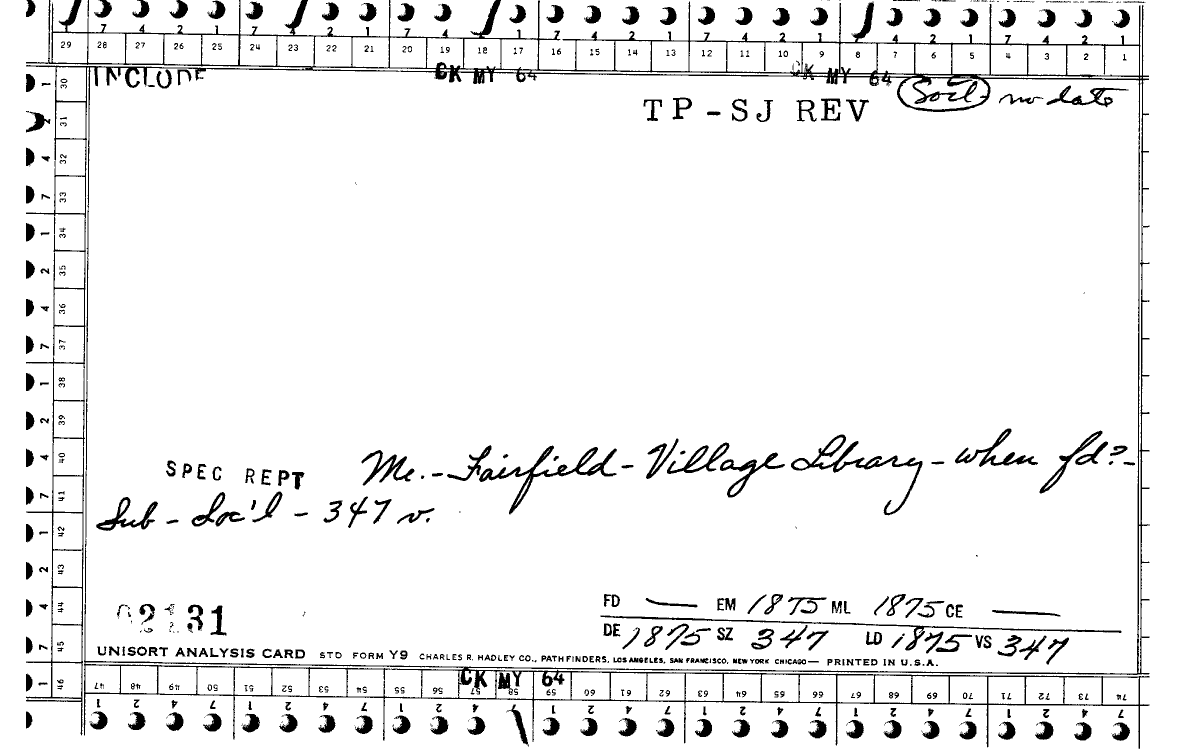 7 4 2 1 7 4 2 1 7 4 2 1 7 4 2 1 7 4 2 1 7 4 2 1
29 28 27 26 25 24 23 22 21 20 19 18 17 16 15 14 13 12 11 10 9 8 7 6 5 4 3 2 1
INCLUDE CK MY 64 CK MY 64
TP-SJ REV Soc'l no date
1 30
2 31
4 32
7 33
1 34
2 35
4 36
7 37
1 38
2 39
4 40
7 41
1 42
2 43
4 44
7 45
1 46
SPEC REPT Me.-Fairfield-Village Library-when fd?-
Sub - Soc'l - 347 v.
02131
FD — EM 1875 ML 1875 CE —
DE 1875 SZ 347 LD 1875 VS 347
UNISORT ANALYSIS CARD STD FORM Y9 CHARLES R. HADLEY CO., PATHFINDERS, LOS ANGELES, SAN FRANCISCO, NEW YORK CHICAGO— PRINTED IN U.S.A.
CK MY 64
47 48 49 50 51 52 53 54 55 56 57 58 59 60 61 62 63 64 65 66 67 68 69 70 71 72 73 74
1 2 4 7 1 2 4 7 1 2 4 1 2 4 7 1 2 4 7 1 2 4 7 1 2 4 7